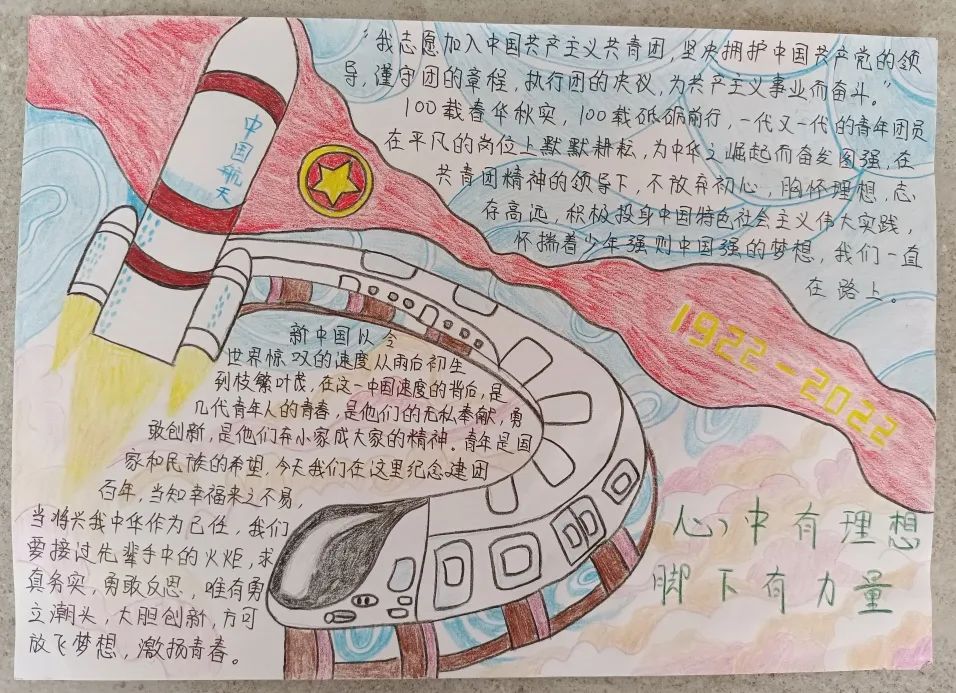 “我志愿加入中国共产主义共青团，坚决拥护中国共产党的领
导，谨守团的章程，执行团的决议，为共产主义事业而奋斗。”
100载春华秋实，100载砥砺前行，一代又一代的青年团员
在平凡的岗位上默默耕耘，为中华之崛起而奋发图强，在
共青团精神的领导下，不放弃初心，胸怀理想，志
存高远，积极投身中国特色社会主义伟大实践，
怀揣着少年强则中国强的梦想，我们一直
在路上。
中国航天
1922-2022
新中国以令
世界惊叹的速度从雨后初生
到枝繁叶茂，在这一中国速度的背后，是
几代青年人的青春，是他们的无私奉献，勇
敢创新，是他们弃小家成大家的精神。青年是国
家和民族的希望，今天我们在这里纪念建团
百年，当知幸福来之不易，
当将兴我中华作为己任，我们
要接过先辈手中的火炬，求
真务实，勇敢反思，唯有勇
立潮头，大胆创新，方可
放飞梦想，激扬青春。
心中有理想
脚下有力量